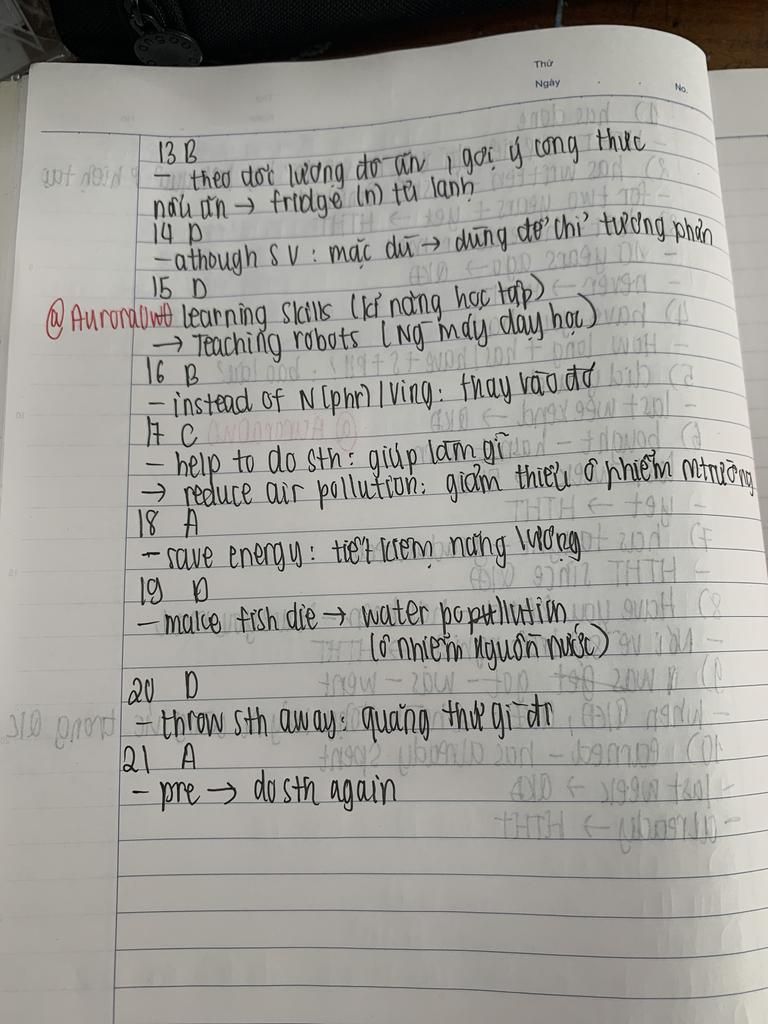 Thứ
Ngày
No.
13 B
- theo dõi lượng đồ ăn, gợi ý công thức
nấu ăn → fridge (n) tủ lạnh
14 D
- athough S V : mặc dù → dùng để chỉ tương phản
15 D
@Aurora learning skills (kĩ năng học tập)
→ Teaching robots (Ng máy dạy học)
16 B
- instead of N(phr) / Ving: thay vào đó
17 C
- help to do sth: giúp làm gì
→ reduce air pollution: giảm thiểu ô nhiễm mtrường
18 A
- save energy: tiết kiệm năng lượng
19 D
- make fish die → water popullution
(ô nhiễm nguồn nước)
20 D
- throw sth away: quăng thứ gì đi
21 A
- pre → do sth again